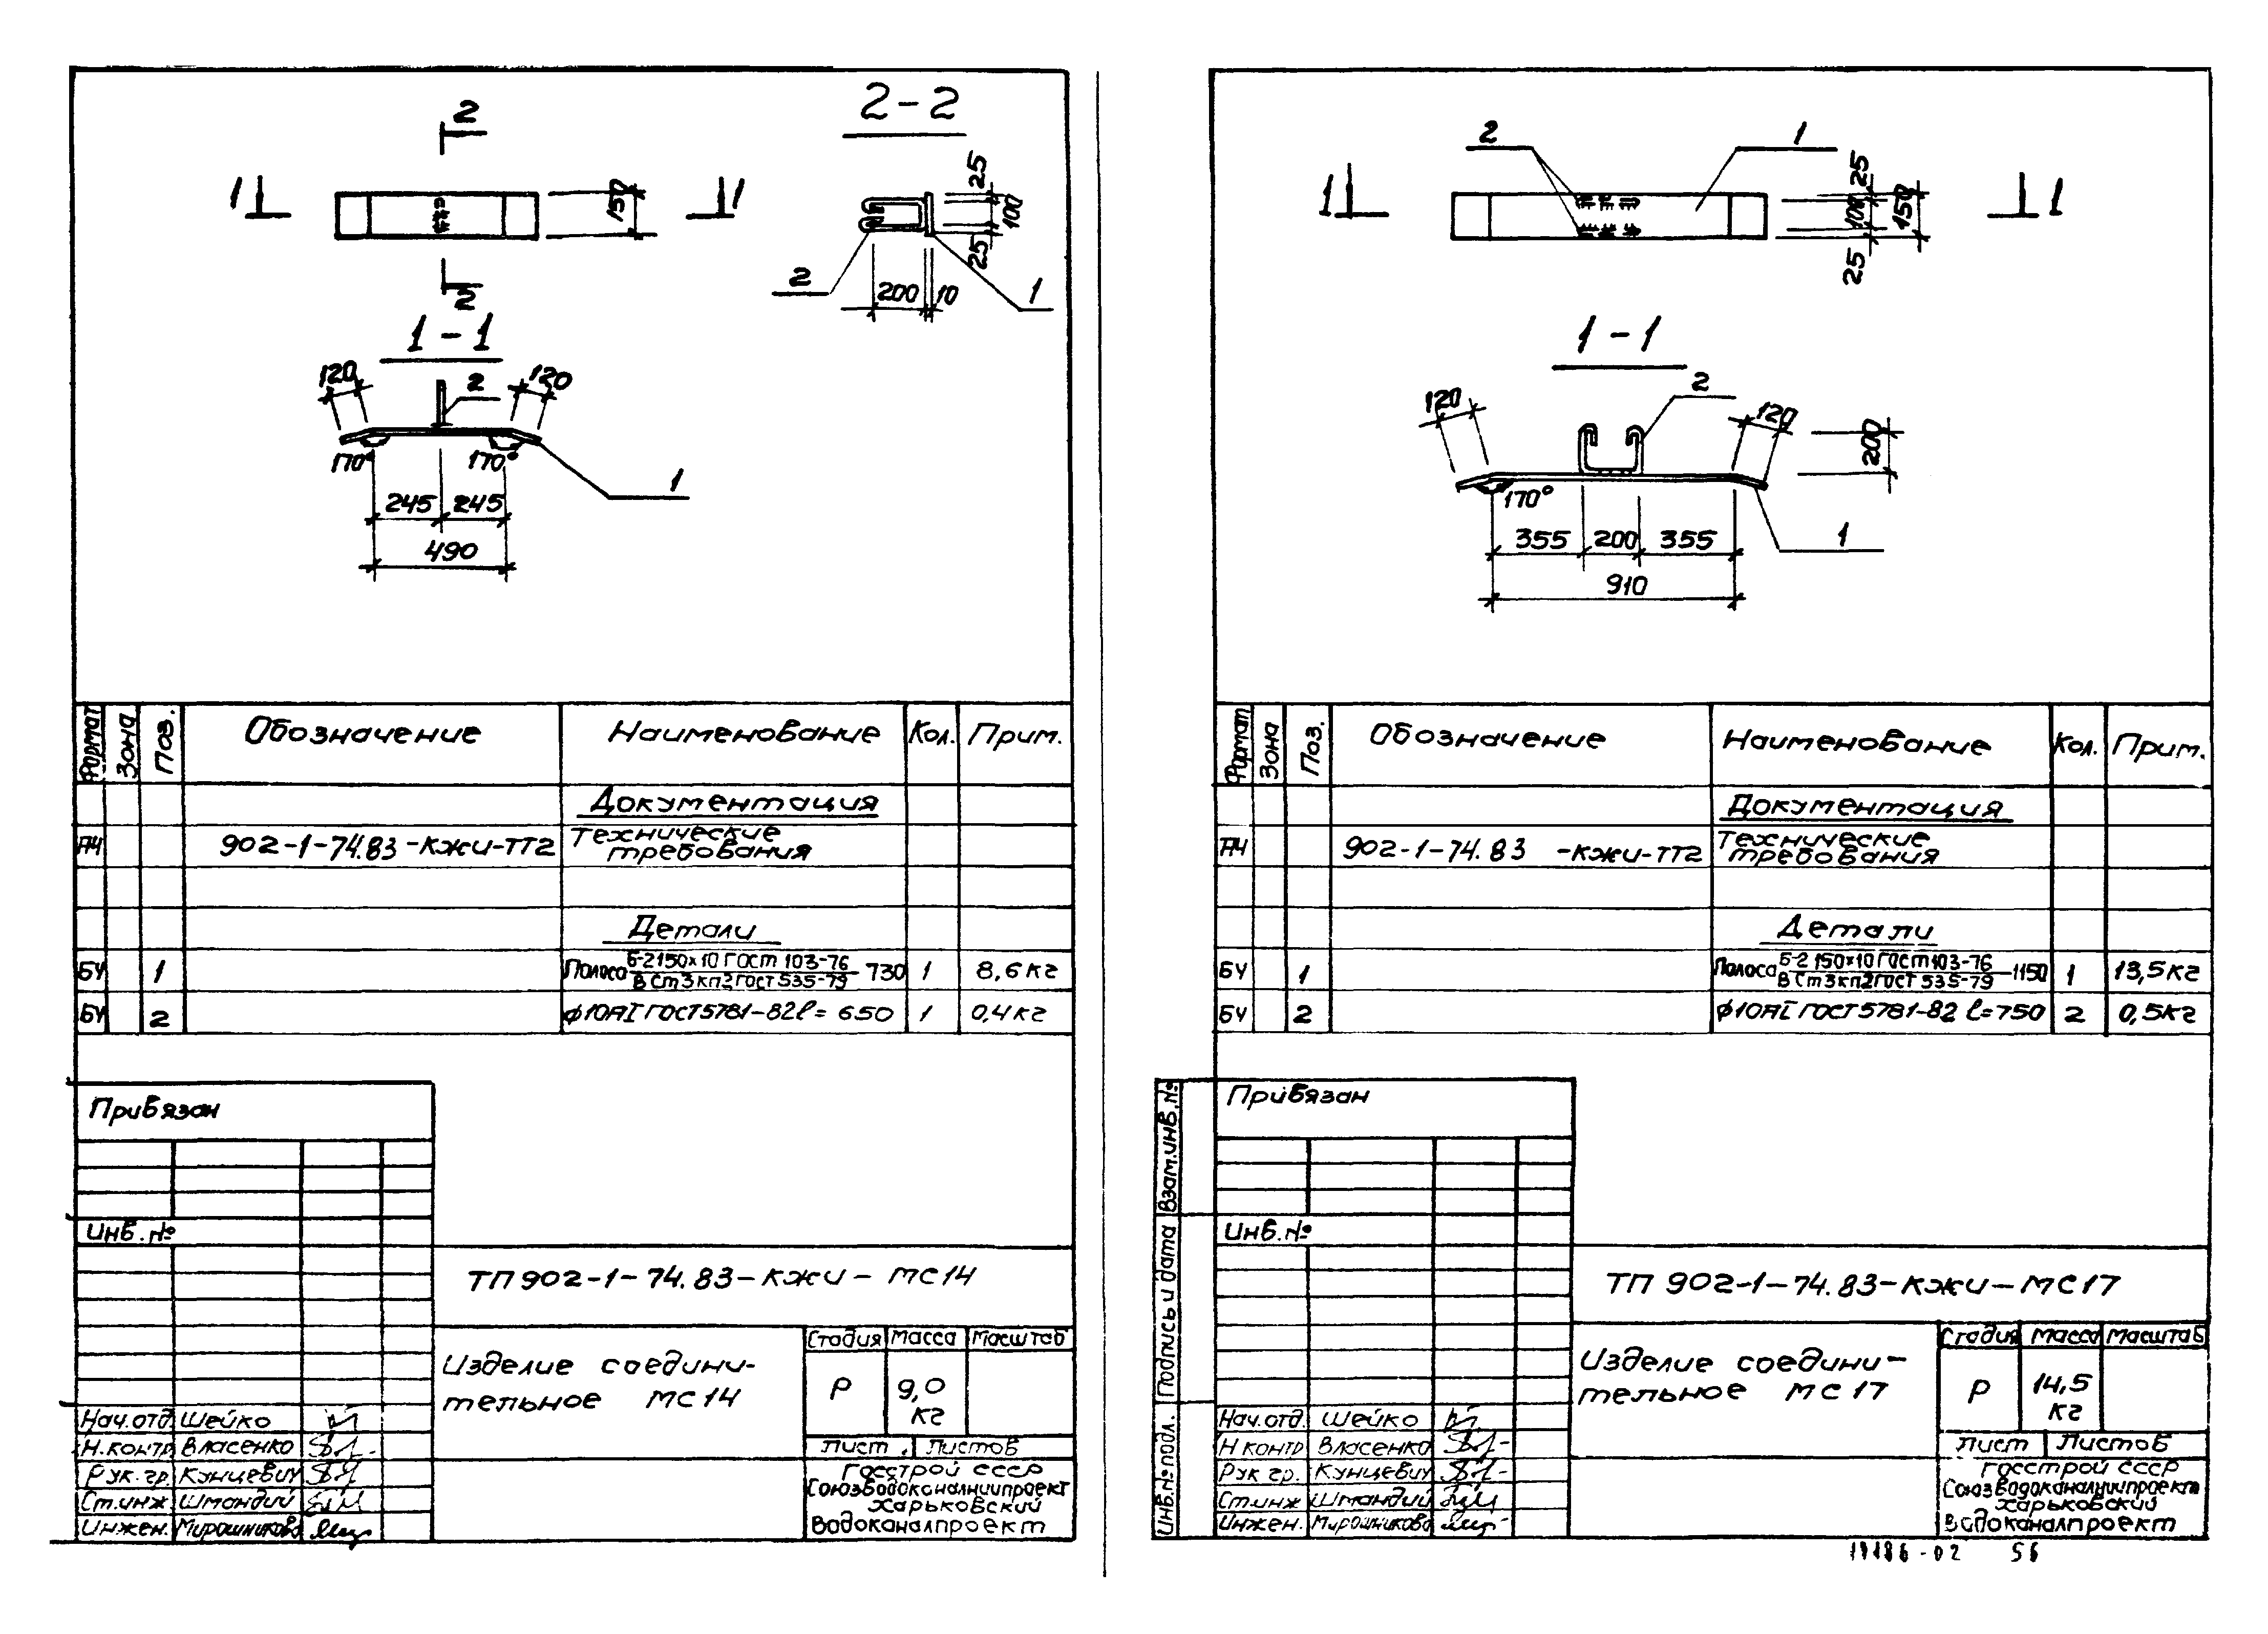 2
2-2
1 1
150
25
100
25
2
2
200 10
1
1-1
120 2 120
170° 170°
1
245 245
490
Формат Зона Поз. Обозначение Наименование Кол. Прим.
Документация
А4 902-1-74.83-КЖИ-ТТ2 Технические
требования
Детали
БЧ 1 Полоса Б-2 150×10 ГОСТ 103-76 730 1 8,6 кг
ВСт3кп2 ГОСТ 535-79
БЧ 2 ф10АI ГОСТ 5781-82 ℓ= 650 1 0,4 кг
Привязан
Инв.№
ТП 902-1-74.83-КЖИ-МС14
Изделие соедини-
тельное МС14
Стадия Масса Масштаб
Р 9,0
кг
Лист Листов
Нач.отд. Шейко
Н.контр Власенко
Рук.гр. Кунцевич
Ст.инж. Шмандий
Инжен. Мирошникова
Госстрой СССР
Союзводоканалниипроект
Харьковский
Водоканалпроект
2 1
1 1
25
100 150
25
1-1
120 2 120
200
170°
1
355 200 355
910
Формат Зона Поз. Обозначение Наименование Кол. Прим.
Документация
А4 902-1-74.83 -КЖИ-ТТ2 Технические
требования
Детали
БЧ 1 Полоса Б-2 150×10 ГОСТ 103-76 1150 1 13,5 кг
ВСт3кп2 ГОСТ 535-79
БЧ 2 ф10АI ГОСТ 5781-82 ℓ=750 2 0,5кг
Взам.инв.№
Подпись и дата
Инв.№подл.
Привязан
Инв.№
ТП 902-1-74.83-КЖИ-МС17
Изделие соедини-
тельное МС17
Стадия Масса Масштаб
Р 14,5
кг
Лист Листов
Нач.отд. Шейко
Н контр Власенко
Рук гр. Кунцевич
Ст.инж Шмандий
Инжен. Мирошникова
Госстрой СССР
Союзводоканалниипроект
Харьковский
Водоканалпроект
19186-02 56